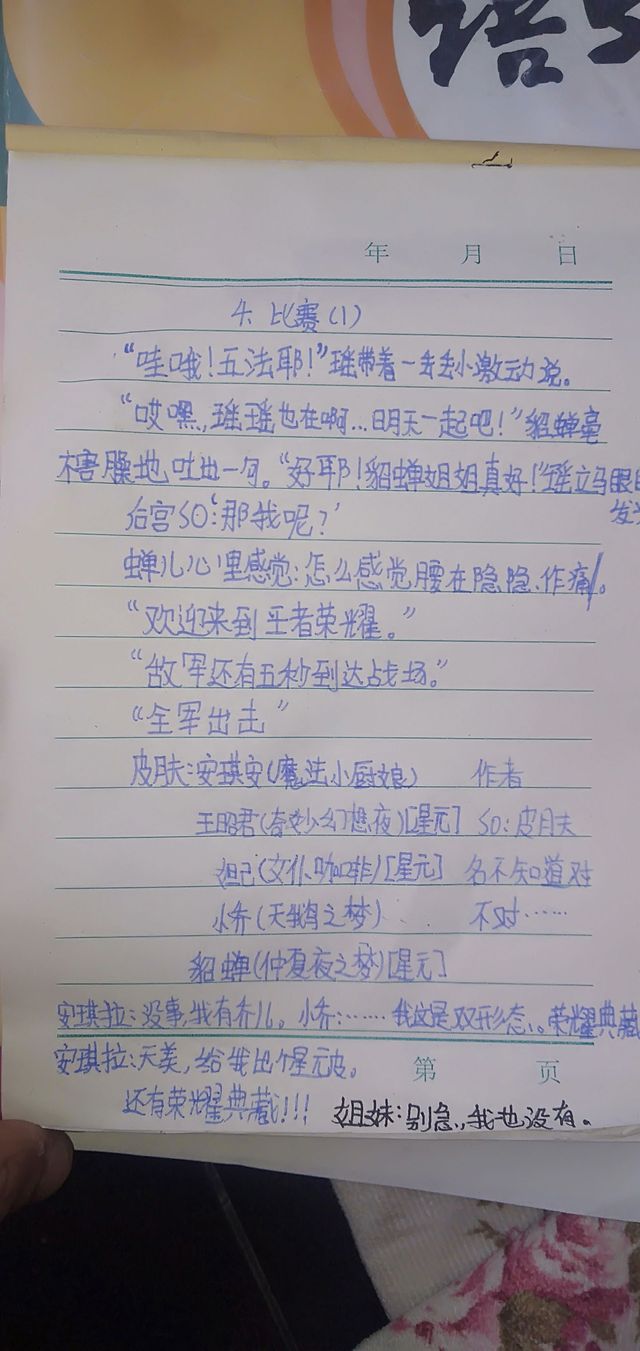 语
年 月 日
4. 比赛(1)
“哇哦！五法耶！”瑶带着一丢丢小激动说。
“哎嘿，瑶瑶也在啊…明天一起吧！”貂蝉毫
不害臊地吐出一句。“好耶！貂蝉姐姐真好！”瑶立马眼
发
后宫SO：‘那我呢？’
蝉儿心里感觉：怎么感觉腰在隐隐作痛。
“欢迎来到王者荣耀。”
“敌军还有五秒到达战场。”
“全军出击”
皮肤：安琪安(魔法小厨娘) 作者
王昭君(奇妙幻想夜)[星元] SO：皮肤
妲己(女仆咖啡)[星元] 名不知道对
小乔(天鹅之梦) 不对……
貂蝉(仲夏夜之梦)[星元]
安琪拉：没事，我有乔儿。小乔：……我这是双形态、。荣耀典藏
安琪拉：天美，给我出个星元皮。
第 页
还有荣耀典藏!!! 姐妹：别急，我也没有。